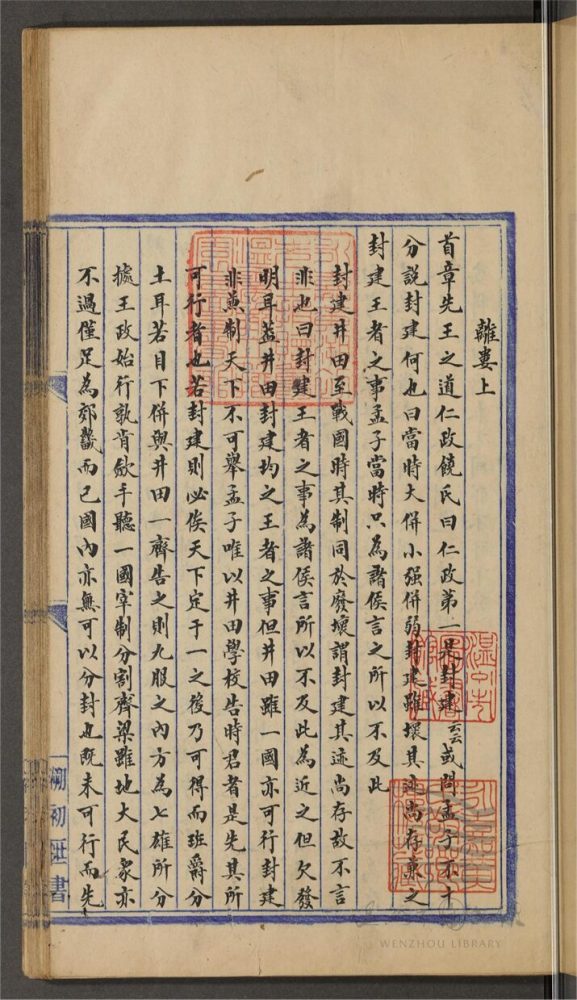 離婁上
首章先王之道仁政饒氏曰仁政第一是封建云云或問孟子不十
分說封建何也曰當時大併小强併弱封建雖壞其迹尚存兼之
封建王者之事孟子當時只為諸侯言之所以不及此
封建井田至戰國時其制同於廢壞謂封建其迹尚存故不言
非也曰封建王者之事為諸侯言所以不及此為近之但欠發
明耳葢井田封建均之王者之事但井田雖一國亦可行封建
非兼制天下不可舉孟子唯以井田學校告時君者是先其所
可行者也若封建則必俟天下定于一之後乃可得而班爵分
土耳若目下併與井田一齊告之則九服之內方為七雄所分
據王政始行孰肯歛手聽一國宰制分割齊梁雖地大民衆亦
不過僅足為郊畿而已國內亦無可以分封也既未可行而先
WENZHOU LIBRARY